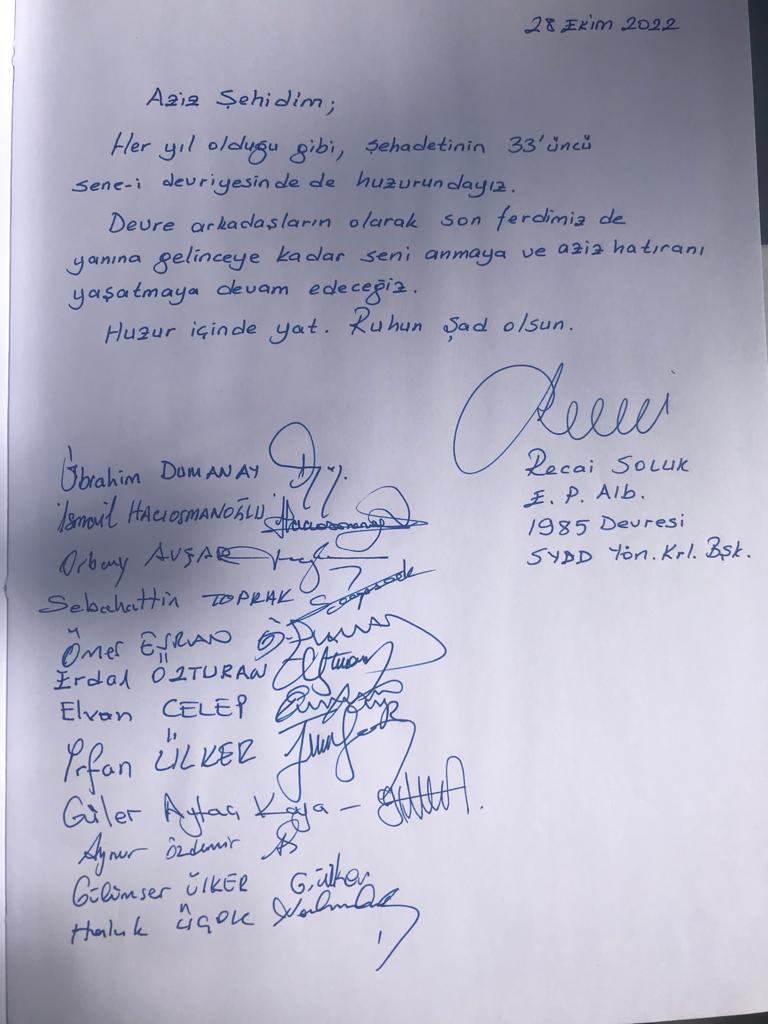 28 Ekim 2022
Aziz Şehidim;
Her yıl olduğu gibi, şehadetinin 33'üncü
sene-i devriyesinde de huzurundayız.
Devre arkadaşların olarak son ferdimiz de
yanına gelinceye kadar seni anmaya ve aziz hatıranı
yaşatmaya devam edeceğiz.
Huzur içinde yat. Ruhun Şad olsun.
Recai SOLUK
E. P. Alb.
1985 Devresi
SYDD Yön. Krl. Bşk.
İbrahim DUMANAY
İsmail HACIOSMANOĞLU
Orbay AVŞAR
Sebahattin TOPRAK
Ömer
Erdal ÖZTURAN
Elvan CELEP
İrfan ÜLKER
Güler Aytaç Kaya -
Aynur özdemir
Gülümser ÜLKER G.ülker
Haluk ÜÇOK